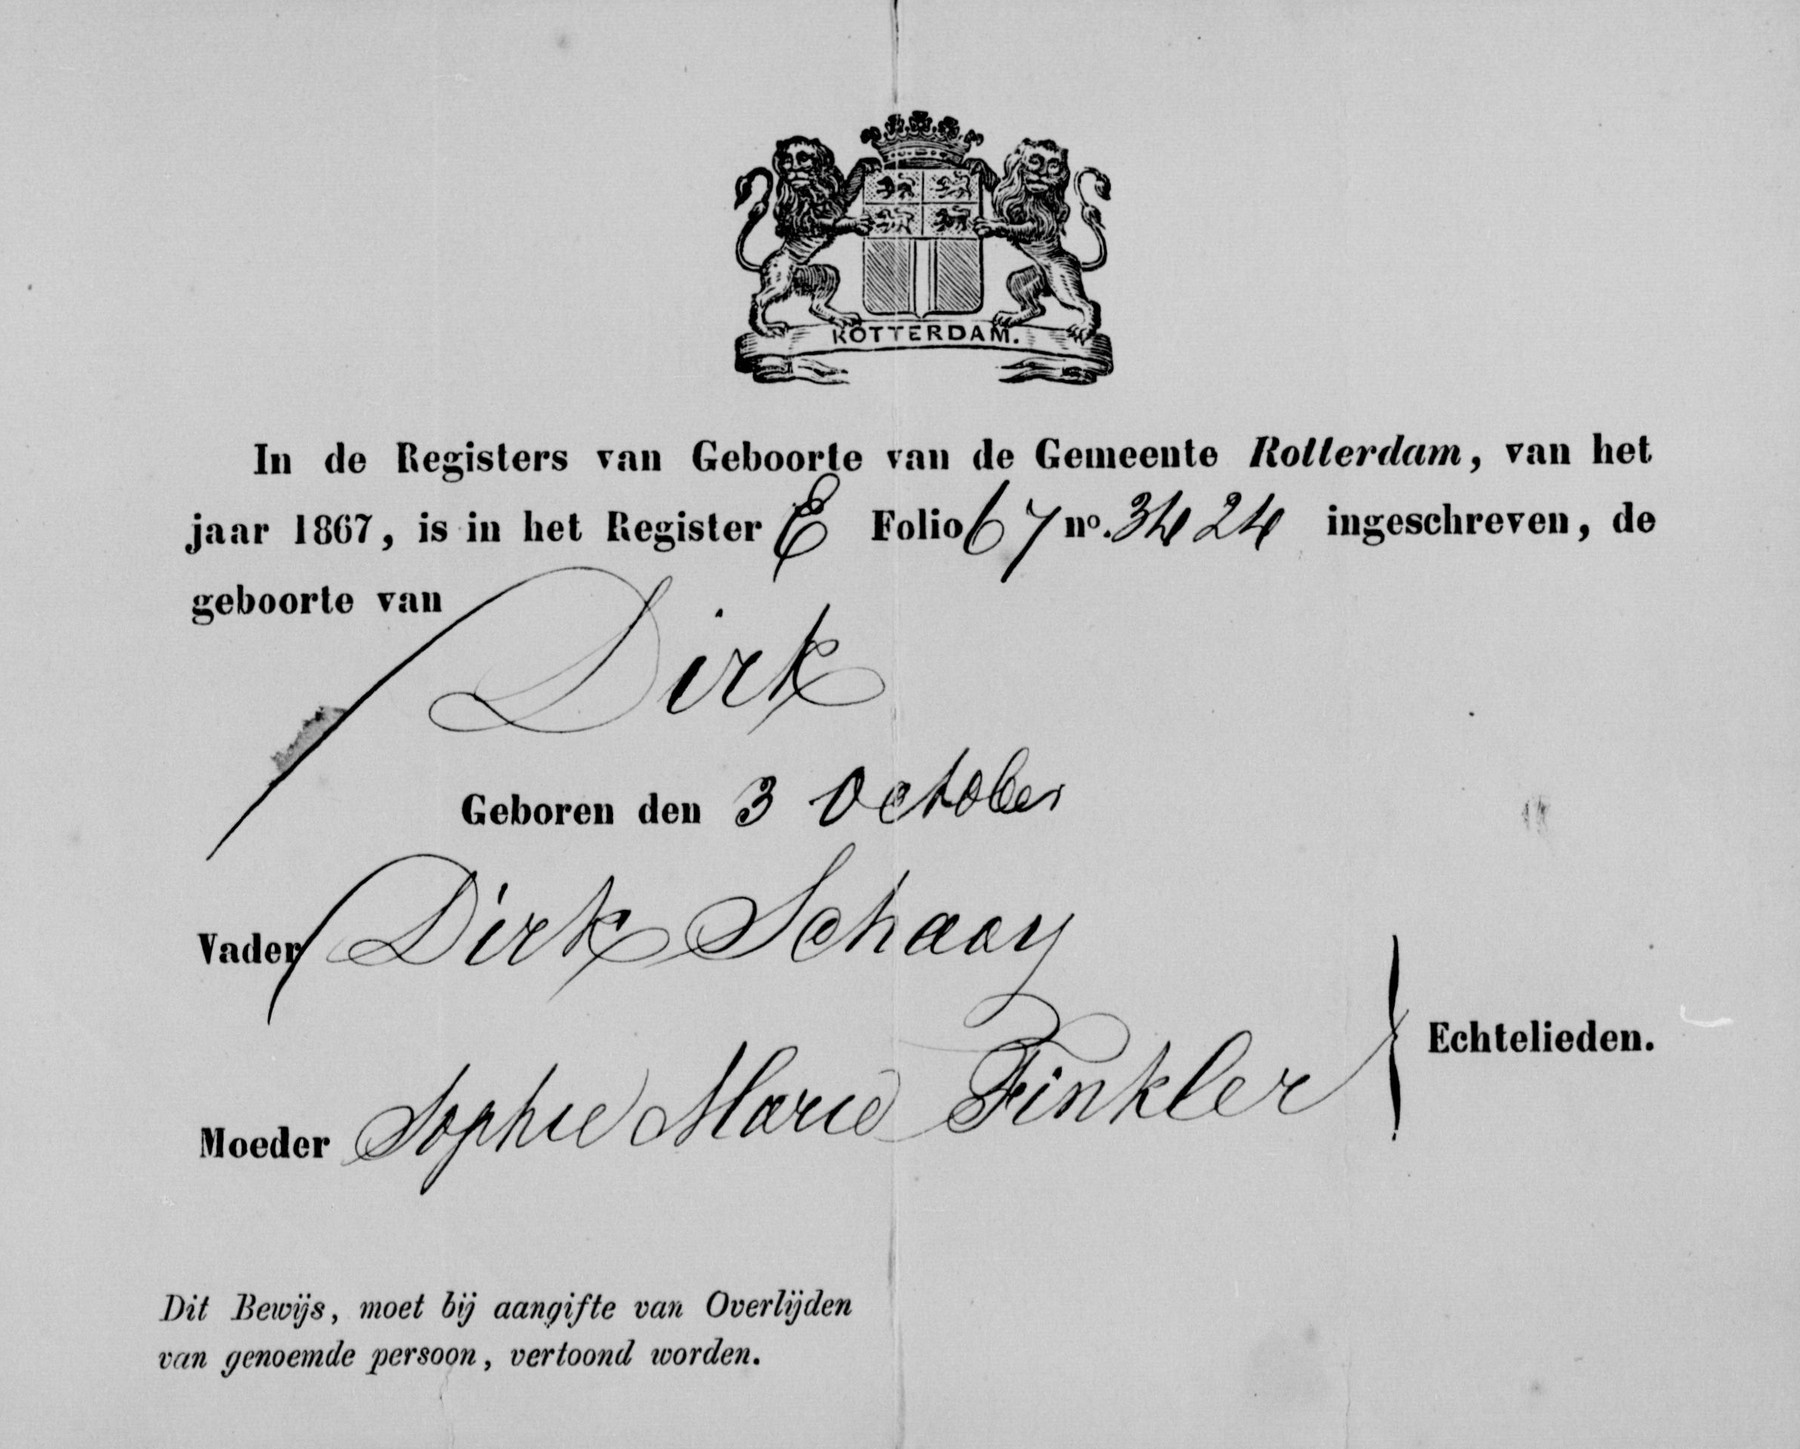 ROTTERDAM.
In de Registers van Geboorte van de Gemeente Rotterdam, van het
jaar 1867, is in het Register E Folio 67 nº. 3424 ingeschreven, de
geboorte van
Dirk
Geboren den 3 October
Vader Dirk Schaay
Echtelieden.
Moeder Sophie Marie Finkler
Dit Bewijs, moet bij aangifte van Overlijden
van genoemde persoon, vertoond worden.